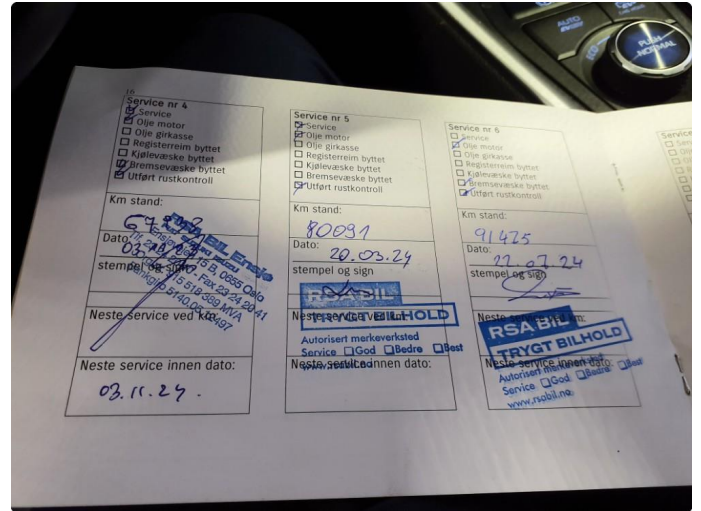 16
Service nr 4
Service
Olje motor
Olje girkasse
Registerreim byttet
Kjølevæske byttet
Bremsevæske byttet
Utført rustkontroll
Km stand:
Dato:
stempel og sign
RSA BIL Ensjø
15 B, 0655 Oslo
Fax 23 24 20 41
MVA
Neste service ved km:
Neste service innen dato:
03.11.24.
Service nr 5
Service
Olje motor
Olje girkasse
Registerreim byttet
Kjølevæske byttet
Bremsevæske byttet
Utført rustkontroll
Km stand:
80091
Dato:
20.03.24
stempel og sign
RSA BIL
TRYGT BILHOLD
Neste service ved km:
Autorisert merkeverksted
Service God Bedre Best
www.rsabil.no
Neste service innen dato:
Service nr 6
Service
Olje motor
Olje girkasse
Registerreim byttet
Kjølevæske byttet
Bremsevæske byttet
Utført rustkontroll
Km stand:
91425
Dato:
24
stempel og sign
RSA BIL
TRYGT BILHOLD
Neste service innen dato:
Autorisert merkeverksted
Service God Bedre Best
www.rsabil.no
Service
AUTO
ECO
PUSH
NORMAL